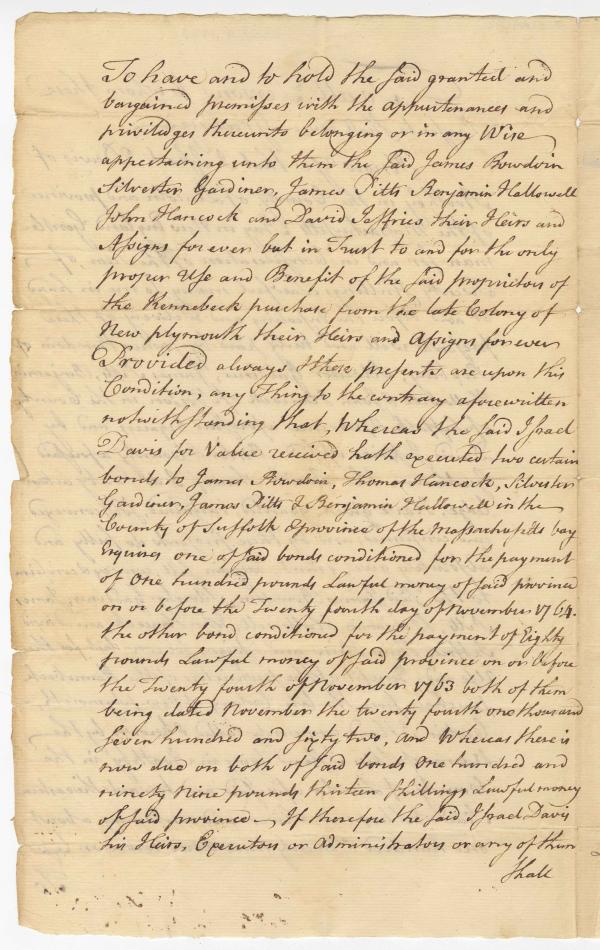 To have and to hold the said granted and
bargained premisses with the appurtenances and
priviledges thereunto belonging or in any Wise
appertaining unto them the said James Bowdoin
Silvester Gardiner, James Pitts Benjamin Hallowell
John Hancock and David Jaffries their Heirs and
Assigns for ever but in Trust to and for the only
proper Use and Benefit of the said proprietors of
the Kennebeck purchase from the late Colony of
New plymouth their Heirs and Assigns for ever
Provided always these presents are upon this
Condition, any Thing to the contrary aforewritten
notwithstanding that, Whereas the said Israel
Davis for Value received hath executed two certain
bonds to James Bowdoin, Thomas Hancock, Silvester
Gardiner, James Pitts & Benjamin Hallowell in the
County of Suffolk & province of the Massachusetts bay
Esquires one of said bonds conditioned for the payment
of One hundred pounds Lawful money of said province
on or before the Twenty fourth day of November 1764.
the other bond conditioned for the payment of Eighty
pounds Lawful money of said province on or before
the Twenty fourth of November 1763 both of them
being dated November the twenty fourth one thousand
seven hundred and sixty two, and Whereas there is
now due on both of said bonds One hundred and
ninety Nine pounds thirteen shillings Lawful money
of said province — If therefore the said Israel Davis
his Heirs, Executors or administrators or any of them
shall